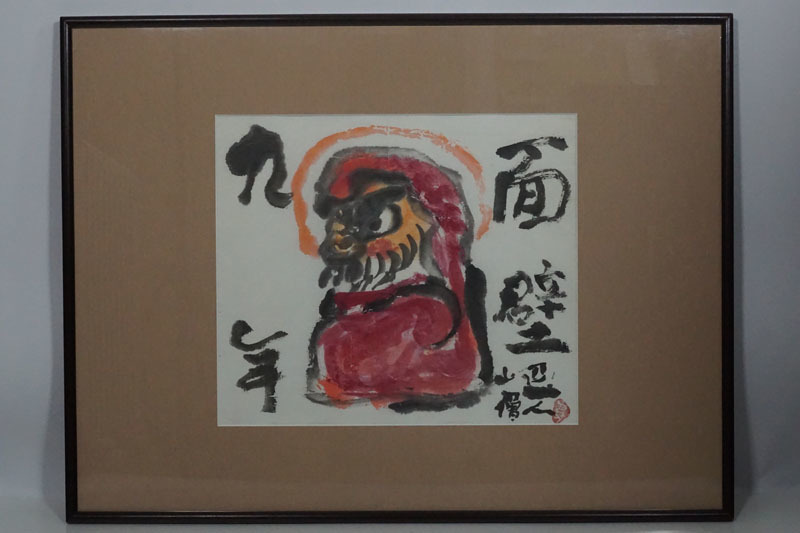 面壁
九年
山僧